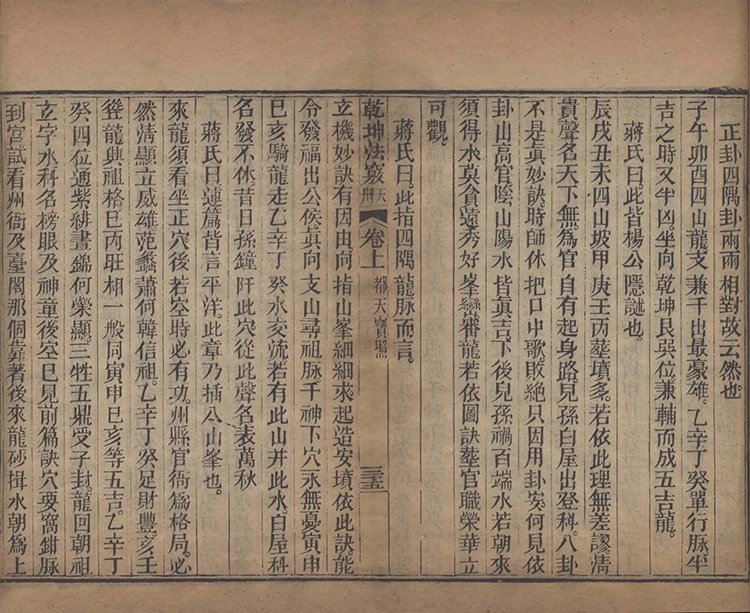 正卦四隅卦兩兩相對故云然也
子午卯酉四山龍支兼千出最豪雄乙辛丁癸單行脉半
吉之時又半凶坐向乾坤艮巽位兼輔而成五吉龍
蔣氏曰此皆楊公隱謎也
辰戌丑未四山坡甲庚壬丙塟墳多若依此理無差謬清
貴聲名天下無為官自有起身路兒孫白屋出登科八卦
不是眞妙訣時師休把口中歌敗絶只因用卦安何見依
卦山高官陰山陽水皆眞吉下後兒孫禍百端水若朝來
須得水莫貪遠秀好峯巒審龍若依圖訣塟官職榮華立
可觀
蔣氏曰此指四隅龍脉而言
乾坤法竅 天冊 卷上 都天寶照 三五
立機妙訣有因由向指山峯細細求起造安墳依此訣能
令發福出公侯眞向支山尋祖脉千神下穴永無憂寅申
巳亥騎龍走乙辛丁癸水交流若有此山并此水白屋科
名發不休昔日孫鐘阡此穴從此聲名表萬秋
蔣氏曰蓮篇皆言平洋此章乃插入山峯也
來龍須看坐正穴後若空時必有功州縣官衙爲格局必
然清顯立威雄范蠡蕭何韓信祖乙辛丁癸足財豐亥壬
聳龍興祖格巳丙旺相一般同寅申巳亥等五吉乙辛丁
癸四位通紫緋晝錦何榮顯三牲五鼎受子封龍回朝祖
立字水科名榜眼及神童後空巳見前篇訣穴要窩鉗脉
到宮試看州衙及臺閣那個靠著後來龍砂揖水朝爲上